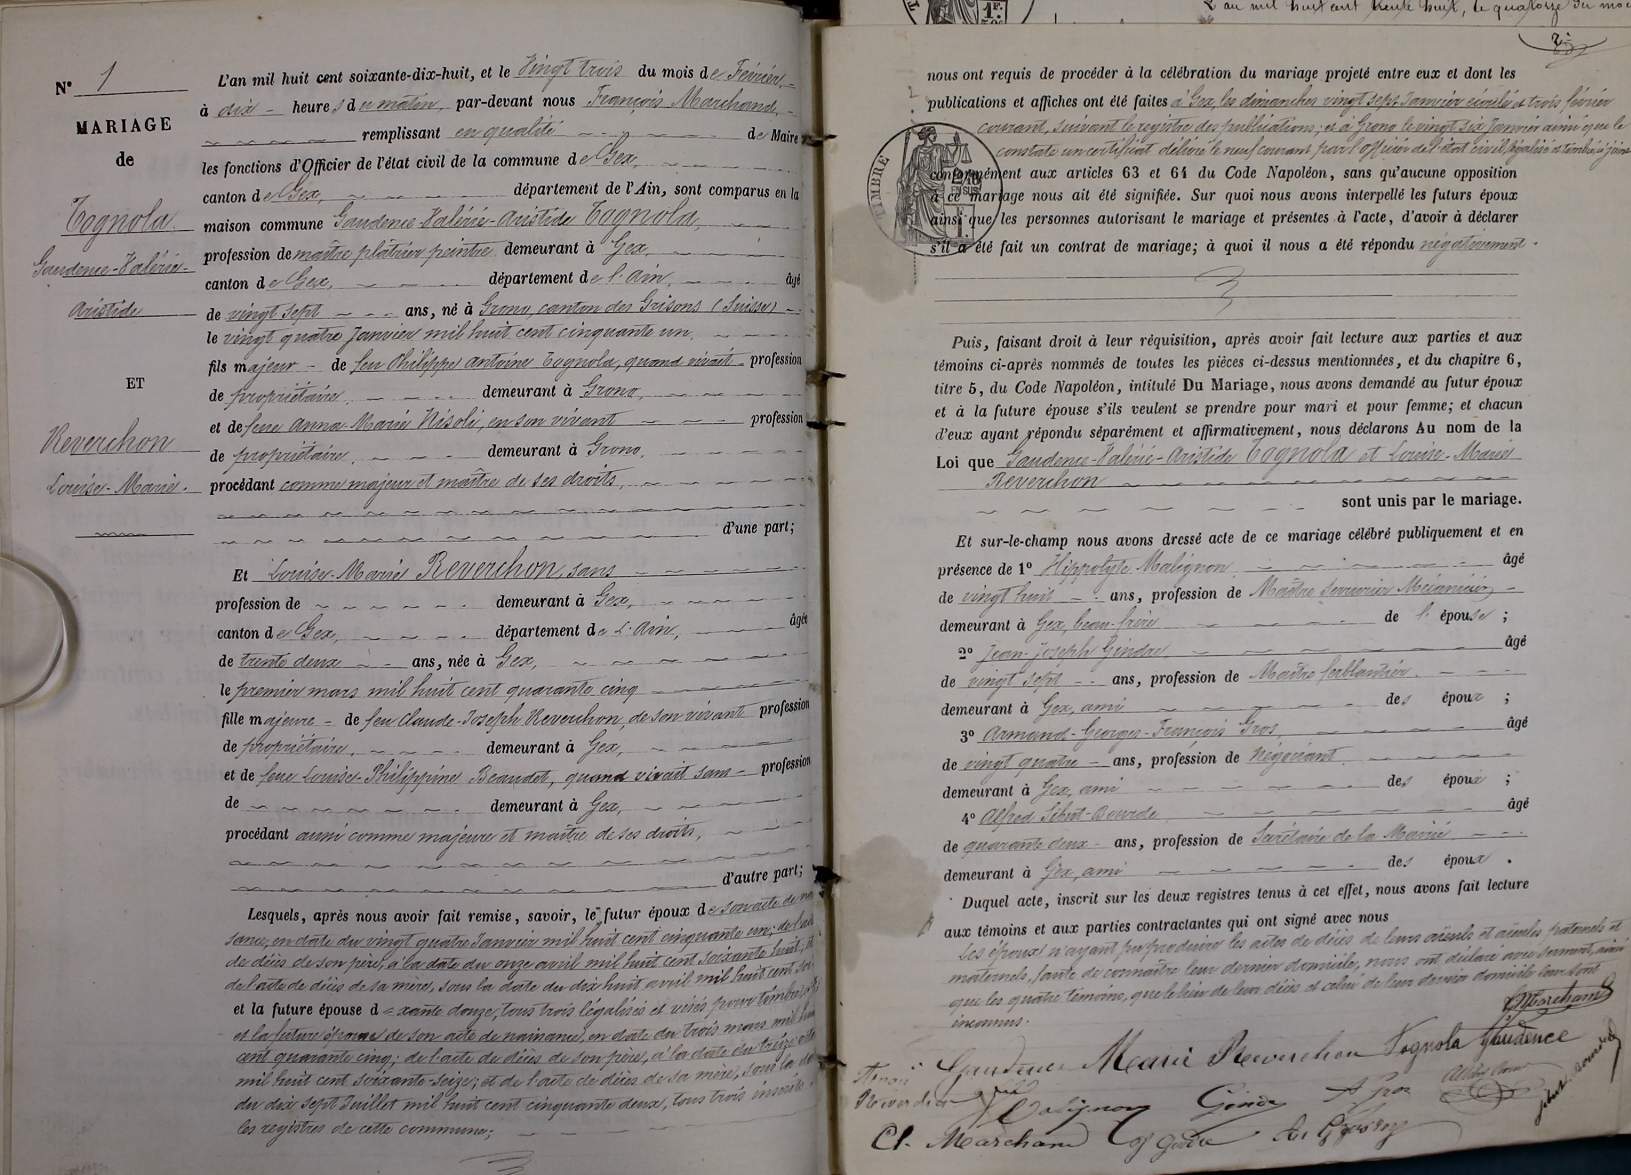 L'an mil huit cent trente huit, le quatorze du mois
N° 1
MARIAGE
de
Tognola
Gaudence-Valérie-
Aristide
ET
Reverchon
Louise-Marie.
L'an mil huit cent soixante-dix-huit, et le Vingt trois du mois de Février,
à dix heures du matin, par-devant nous François Marchand,
remplissant en qualité de Maire
les fonctions d'Officier de l'état civil de la commune de Gex,
canton de Gex, département de l'Ain, sont comparus en la
maison commune Gaudence-Valérie-Aristide Tognola,
profession de maître plâtrier peintre demeurant à Gex,
canton de Gex, département de l'Ain, âgé
de vingt sept ans, né à Grono, canton des Grisons (Suisse)
le vingt quatre Janvier mil huit cent cinquante un,
fils majeur de feu Philippe Antoine Tognola, quand vivait profession
de propriétaire, demeurant à Grono,
et de feue Anna Marie Nisoli, en son vivant profession
de propriétaire, demeurant à Grono,
procédant comme majeur et maître de ses droits,
d'une part;
Et Louise-Marie Reverchon, sans
profession de demeurant à Gex,
canton de Gex, département de l'Ain, âgée
de trente deux ans, née à Gex,
le premier mars mil huit cent quarante cinq
fille majeure de feu Claude-Joseph Reverchon, de son vivant profession
de propriétaire, demeurant à Gex,
et de feue Louise-Philippine Beaudet, quand vivait sans profession
de demeurant à Gex,
procédant aussi comme majeure et maître de ses droits,
d'autre part;
Lesquels, après nous avoir fait remise, savoir, le futur époux de son acte de nais
sance, en date du vingt quatre Janvier mil huit cent cinquante un; de l'acte
de décès de son père, à la date du onze avril mil huit cent soixante huit; et
de l'acte de décès de sa mère, sous la date du dix huit avril mil huit cent soi
et la future épouse d xante douze, tous trois légalisés et visés pour timbre
et la future épouse de son acte de naissance, en date du trois mars mil huit
cent quarante cinq; de l'acte de décès de son père, à la date du treize
mil huit cent soixante-seize; et de l'acte de décès de sa mère, sous la date
du dix sept Juillet mil huit cent cinquante deux, tous trois inscrits
les registres de cette commune;
2
nous ont requis de procéder à la célébration du mariage projeté entre eux et dont les
publications et affiches ont été faites à Gex, les dimanches vingt sept Janvier écoulé et trois février
courant, suivant le registre des publications; et à Grono le vingt six Janvier ainsi que le
constate un certificat délivré le neuf courant par l'officier de l'état civil, légalisé et timbré ci joint
conformément aux articles 63 et 64 du Code Napoléon, sans qu'aucune opposition
à ce mariage nous ait été signifiée. Sur quoi nous avons interpellé les futurs époux
ainsi que les personnes autorisant le mariage et présentes à l'acte, d'avoir à déclarer
s'il a été fait un contrat de mariage; à quoi il nous a été répondu négativement.
TIMBRE
Puis, faisant droit à leur réquisition, après avoir fait lecture aux parties et aux
témoins ci-après nommés de toutes les pièces ci-dessus mentionnées, et du chapitre 6,
titre 5, du Code Napoléon, intitulé Du Mariage, nous avons demandé au futur époux
et à la future épouse s'ils veulent se prendre pour mari et pour femme; et chacun
d'eux ayant répondu séparément et affirmativement, nous déclarons Au nom de la
Loi que Gaudence-Valérie-Aristide Tognola et Louise-Marie
Reverchon
sont unis par le mariage.
Et sur-le-champ nous avons dressé acte de ce mariage célébré publiquement et en
présence de 1° Hippolyte Malignon âgé
de vingt huit ans, profession de Maître Serrurier Mécanicien,
demeurant à Gex, beau-frère de l'épouse;
2° Jean-Joseph Gindre, âgé
de vingt sept ans, profession de Maître ferblantier,
demeurant à Gex, ami des époux;
3° Armand-Georges-François Gros, âgé
de vingt quatre ans, profession de Négociant,
demeurant à Gex, ami des époux;
4° Alfred Sibut-Bourde, âgé
de quarante deux ans, profession de Secrétaire de la Mairie
demeurant à Gex, ami des époux.
Duquel acte, inscrit sur les deux registres tenus à cet effet, nous avons fait lecture
aux témoins et aux parties contractantes qui ont signé avec nous
Les époux n'ayant pu produire les actes de décès de leurs aïeuls et aïeules paternels et
maternels, faute de connaître leur dernier domicile, nous ont déclaré avec serment, ainsi
que les quatre témoins, que le lieu de leur décès et celui de leur dernier domicile leur sont
inconnus.
Marchand
Gaudence Marie Reverchon Tognola Gaudence
Reverchon
Malignon Gindre A Gros
Cl. Marchand